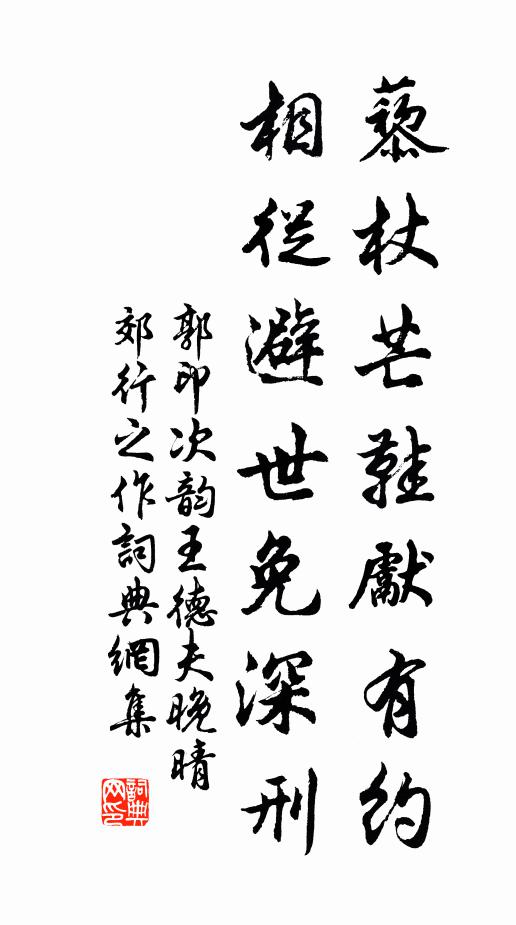 藜杖芒鞋獻有約
相從避世免深刑
郭印次韵王德夫晚晴
郊行之作詞典網集
詞典
网印